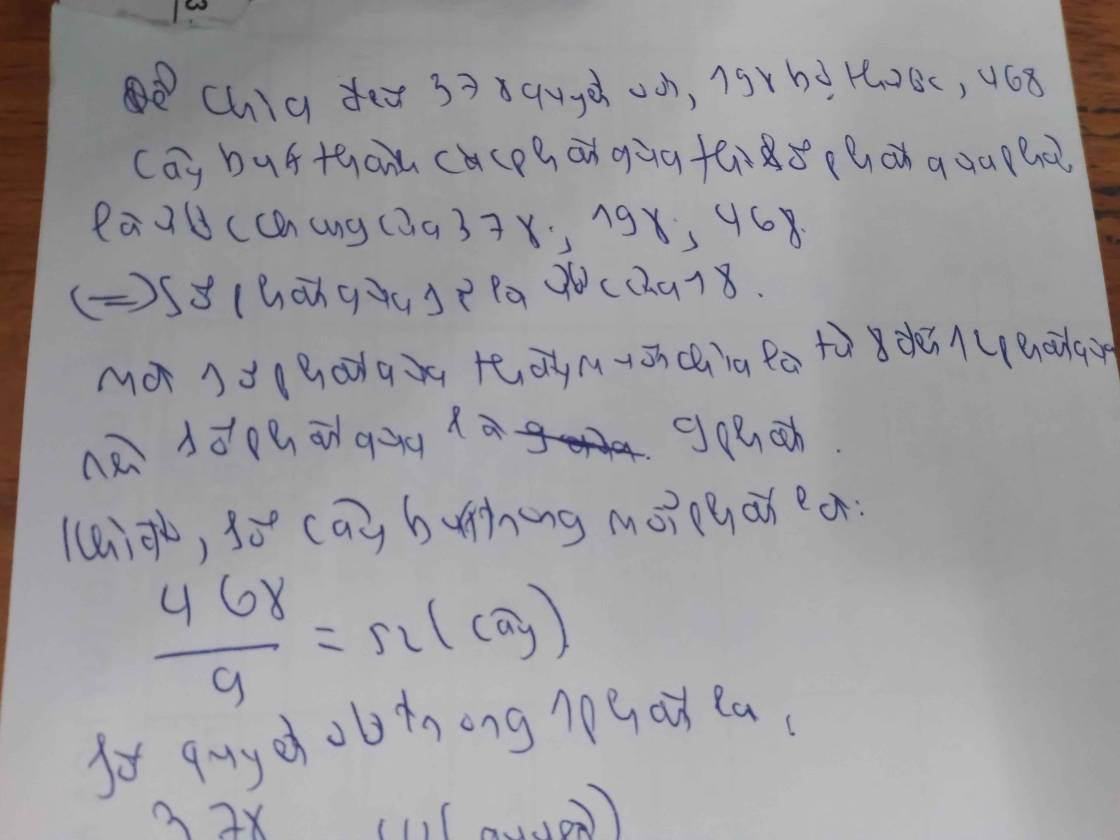 Để chia đều 378 quyển vở, 198 bộ thước, 468
cây bút thành các phần quà thì số phần quà phải
là ước chung của 378; 198; 468.
(=>) Số phần quà sẽ là ước của 18.
mà số phần quà thầy muốn chia là từ 8 đến 14 phần quà
nên số phần quà là 9 phần.
Khi đó, số cây bút trong mỗi phần là:
468
9 = 52 (cây)
Số quyển vở trong 1 phần là:
378 (quyển)